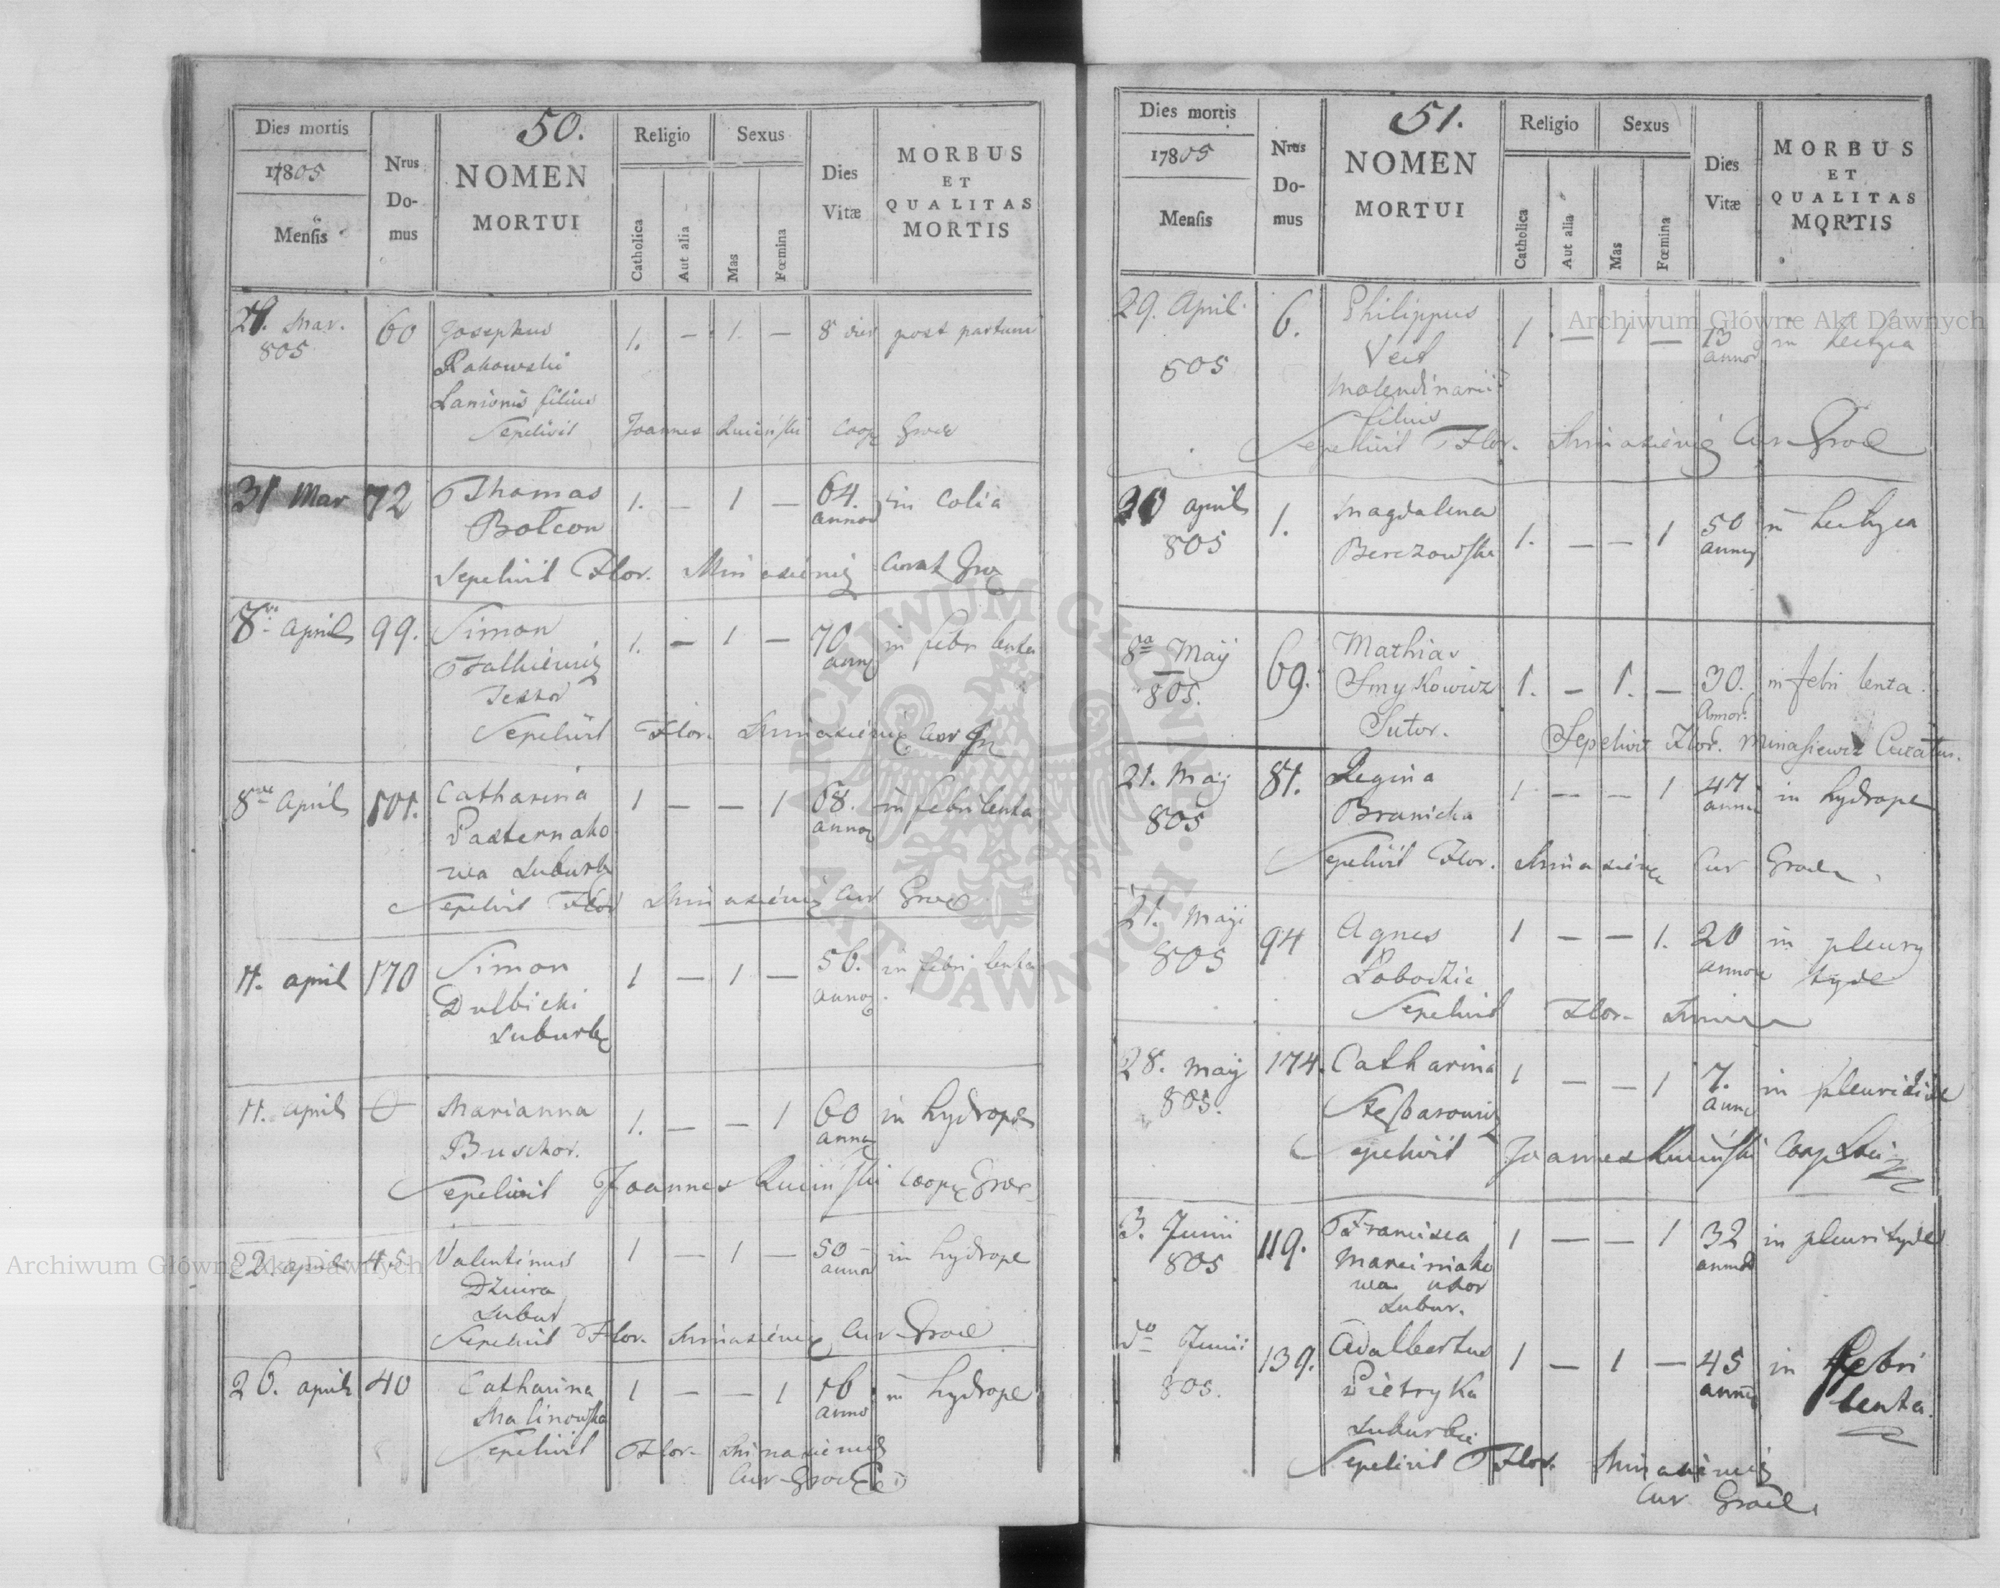 50.
Dies mortis
17805
Mensis
Nrus Do-mus
NOMEN
MORTUI
Religio
Catholica
Aut alia
Sexus
Mas
Fœmina
Dies
Vitæ
MORBUS
ET
QUALITAS
MORTIS
29. Mar. 60 Josephus 1. — 1. — 8 dies post partum
805
Rakowski
Lanionis filius
Sepelivit Joannes Ruciński Coop
31 Mar 72 Thomas 1. — 1 — 64. in colia
Bolcon annor
Sepelivit Flor. Minasiewicz Curat
8va April 99. Simon 1. — 1 — 70 in febri lenta
Falkiewicz
Textor
Sepelivit Flor. Minasiewicz Cur
8va April 101. Catharina 1 — — 1 68. in febri lenta
Pasternako annor
wa Suburb
Sepelivit Flor Minasiewicz Cur
11. april 170 Simon 1 — 1 — 56. in febri lenta
Dulbicki annor
Suburb
11. april 0 Marianna 1. — — 1 60 in hydrope
Buschor.
Sepelivit Joannes Ruciński Coop
22. april 45 Valentinus 1 — 1 — 50 in hydrope
Dziura annor
Subur
Sepelivit Flor. Minasiewicz Cur
26. april 40 Catharina 1 — — 1 16 in hydrope
Malinowska annor
Sepelivit Flor. Minasiewicz
Cur
51.
Dies mortis
17805
Mensis
Nrus Do-mus
NOMEN
MORTUI
Religio
Catholica
Aut alia
Sexus
Mas
Fœmina
Dies
Vitæ
MORBUS
ET
QUALITAS
MORTIS
29. April 6. Philippus 1 — 1 — 13 in hectyca
805 Veit annor
Molendinarii
filius
Sepelivit Flor. Minasiewicz Cur
april 1. Magdalena 1. — — 1 50 in hectyca
805 Berezowska
8a Maij 69. Mathias
805. Smykowicz 1. — 1. — 30. in febri lenta.
Sutor. Annor.
Sepelivit Flor. Minasiewicz Curatus.
21. Maij 81. Regina 1 — — 1 47 in hydrope
805 Branicka
Sepelivit Flor. Minasiewicz Cur
21. Maji 94 Agnes 1 — — 1. 20 in pleury
805 annor tyde
Sepelivit Flor. Minas
28. Maij 174. Catharina 1 — — 1 7. in pleuritide
805.
Sepelivit Joannes Ruciński Coop
3. Junii 119. Francisca 1 — — 1 32 in pleurityde
805 Marciniako annor
wa uxor
Subur.
do Junii 139. Adalbertus 1 — 1 — 45 in febri
805. Pietryka lenta.
Suburbii
Sepelivit Flor. Minasiewicz
Cur
Archiwum Główne Akt Dawnych
Archiwum Główne Akt Dawnych
ARCHIWUM GŁÓWNE AKT DAWNYCH